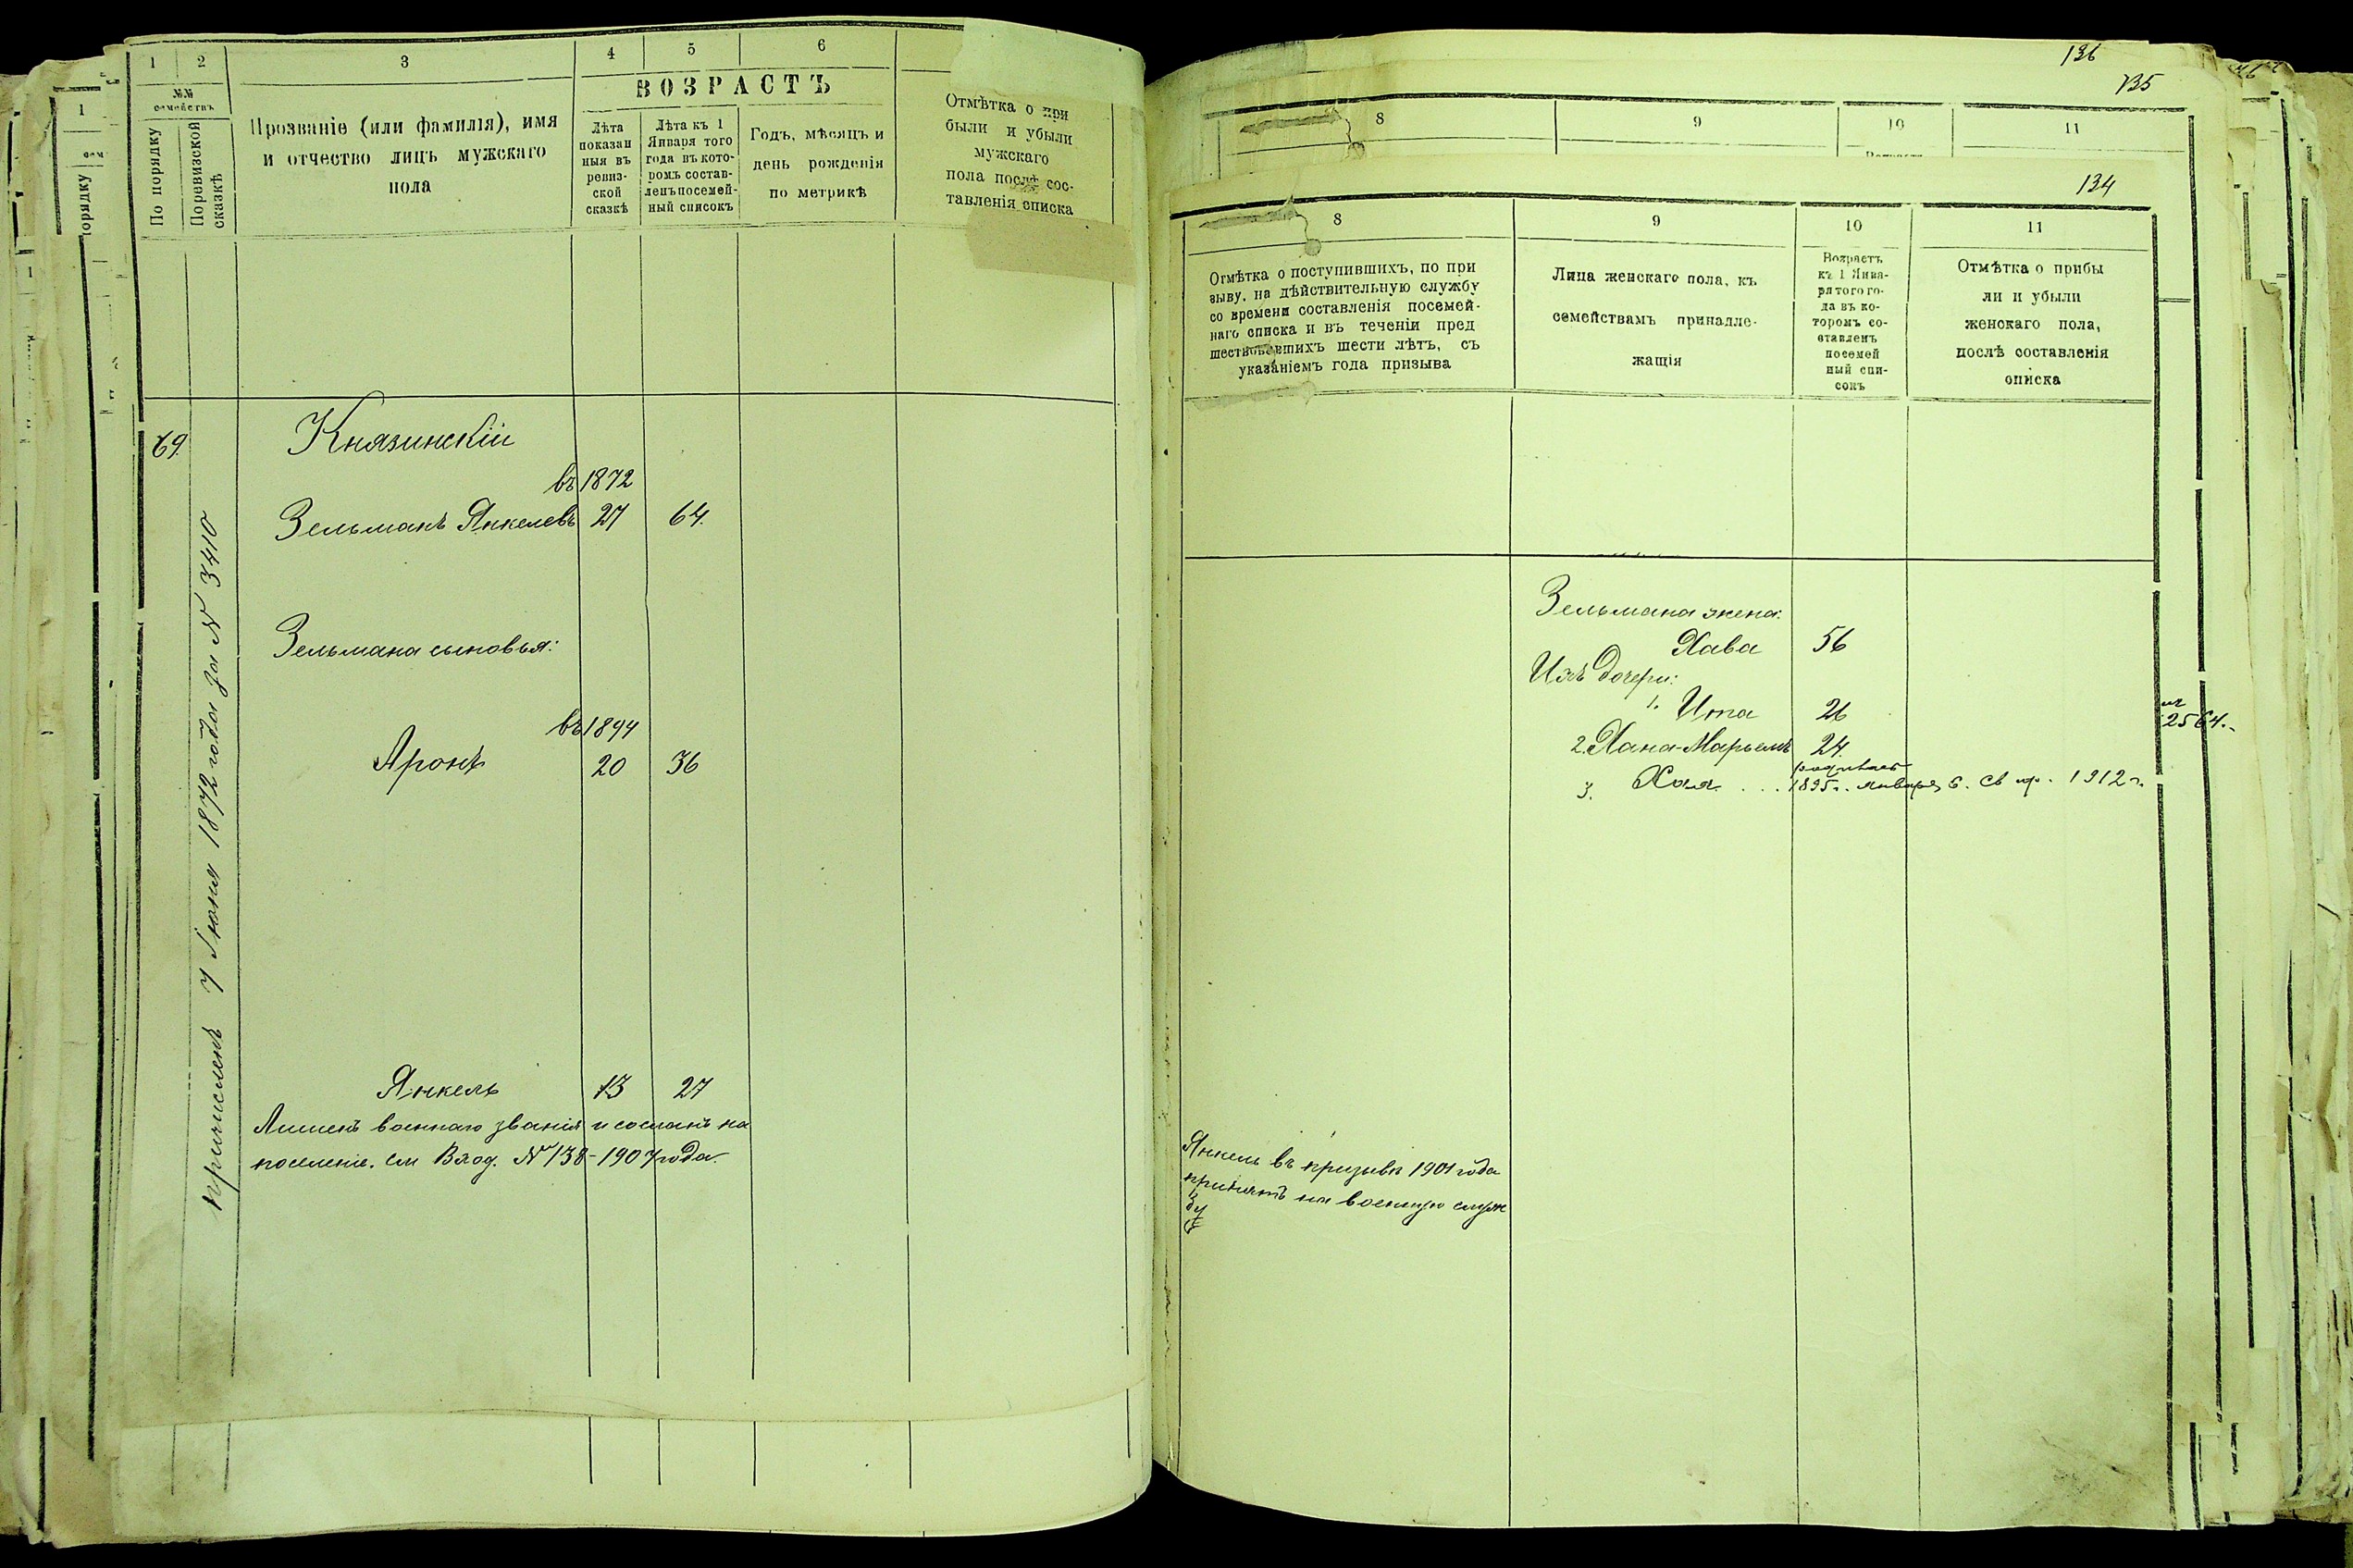 1 2 3 4 5 6
№№ семействъ
По порядку
По ревизской сказкѣ
Прозваніе (или фамилія), имя
и отчество лицъ мужскаго
пола
ВОЗРАСТЪ
Лѣта
показан
ныя въ
ревиз-
ской
сказкѣ
Лѣта къ 1
Января того
года въ кото-
ромъ состав-
ленъ посемей-
ный списокъ
Годъ, мѣсяцъ и
день рожденія
по метрикѣ
Отмѣтка о при
были и убыли
мужскаго
пола послѣ сос-
тавленія списка
69.
Князинскій
въ 1872
Зельманъ Янкелевъ 27 64.
Зельмана сыновья:
въ 1894
Аронъ 20 36
Янкель 13 27
Лишенъ военнаго званія и сосланъ на
поселеніе. см Вход. № 138-1907 года.
причисленъ 7 Іюня 1872 года за № 3410
136
135
8 9 10 11
134
8 9 10 11
Отмѣтка о поступившихъ, по при
зыву, на дѣйствительную службу
со времени составленія посемей-
наго списка и въ теченіи пред
шествовавшихъ шести лѣтъ, съ
указаніемъ года призыва
Лица женскаго пола, къ
семействамъ принадле-
жащія
Возрастъ
къ 1 Янва-
ря того го-
да въ ко-
торомъ со-
ставленъ
посемей
ный спи-
сокъ
Отмѣтка о прибы
ли и убыли
женскаго пола,
послѣ составленія
списка
Зельмана жена:
Хава 56
Ихъ дочери:
1. Ита 26
2. Хана-Марьемъ 24.
родилась
3. Хая ... 1895 г. января 6. св 1912 г.
2564.
Янкель въ призывъ 1901 года
принятъ на военную служ
бу